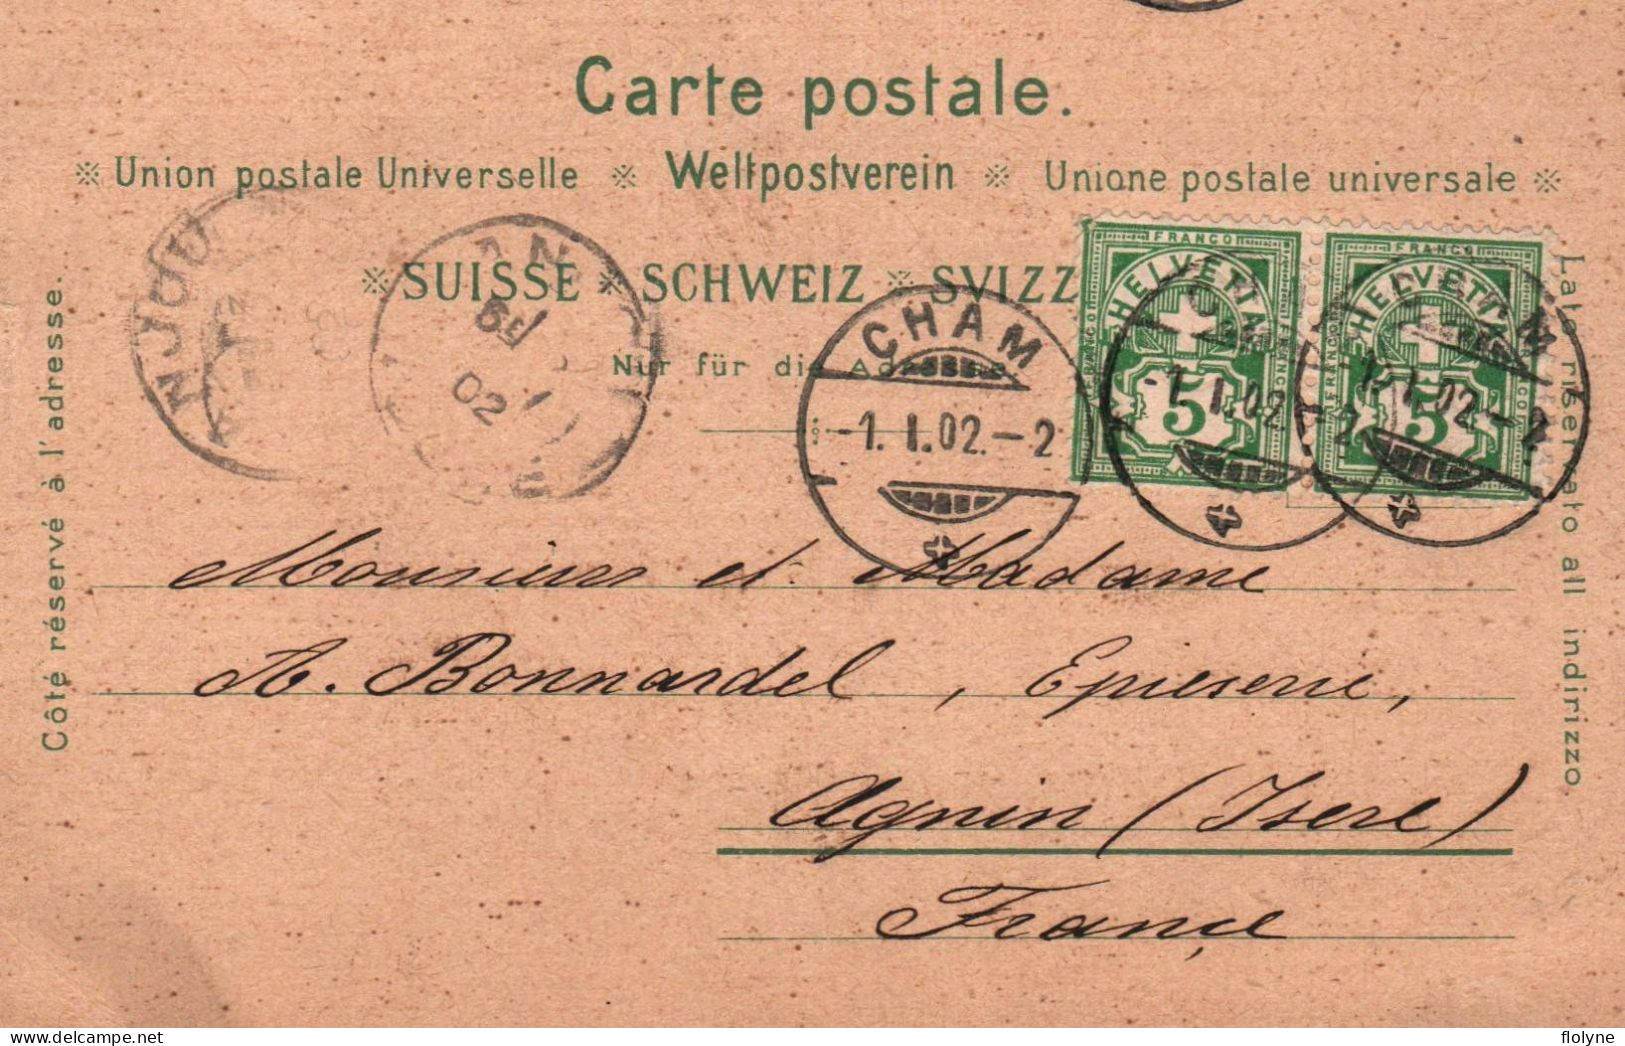 Carte postale.
※ Union postale Universelle ※ Weltpostverein ※ Unione postale universale ※
※ SUISSE ※ SCHWEIZ ※ SVIZZ
Nur für die Adresse.
Côté réservé à l'adresse.
Lato riservato all indirizzo.
FRANCO
HELVETIA
5
FRANCO
HELVETIA
5
CHAM
-1. I. 02.-2
-1. I. 02.-2
-1. I. 02.-2
02
Monsieur et Madame
A. Bonnardel, Epicerie,
Agnin (Isere)
France
flolyne